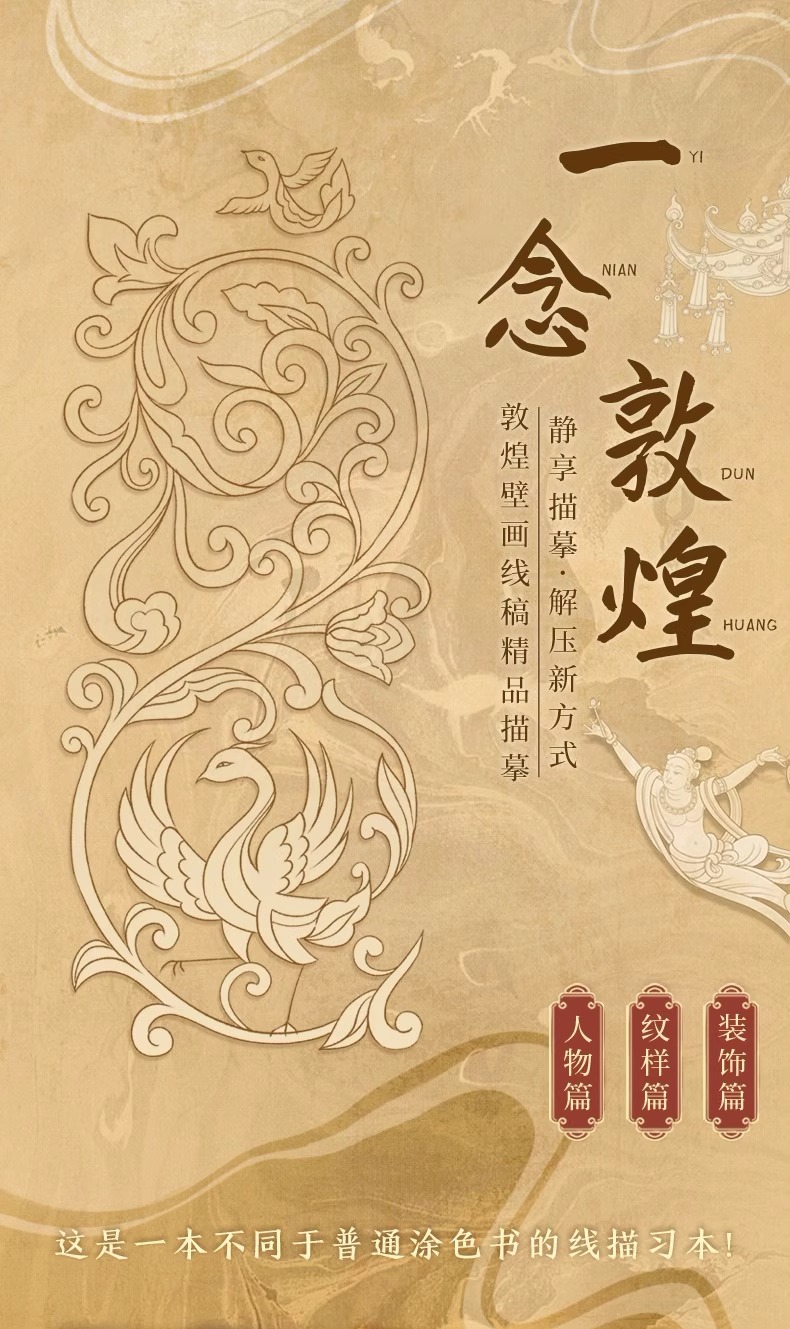 一 YI
念 NIAN
敦 DUN
煌 HUANG
静享描摹·解压新方式
敦煌壁画线稿精品描摹
装饰篇
纹样篇
人物篇
这是一本不同于普通涂色书的线描习本!